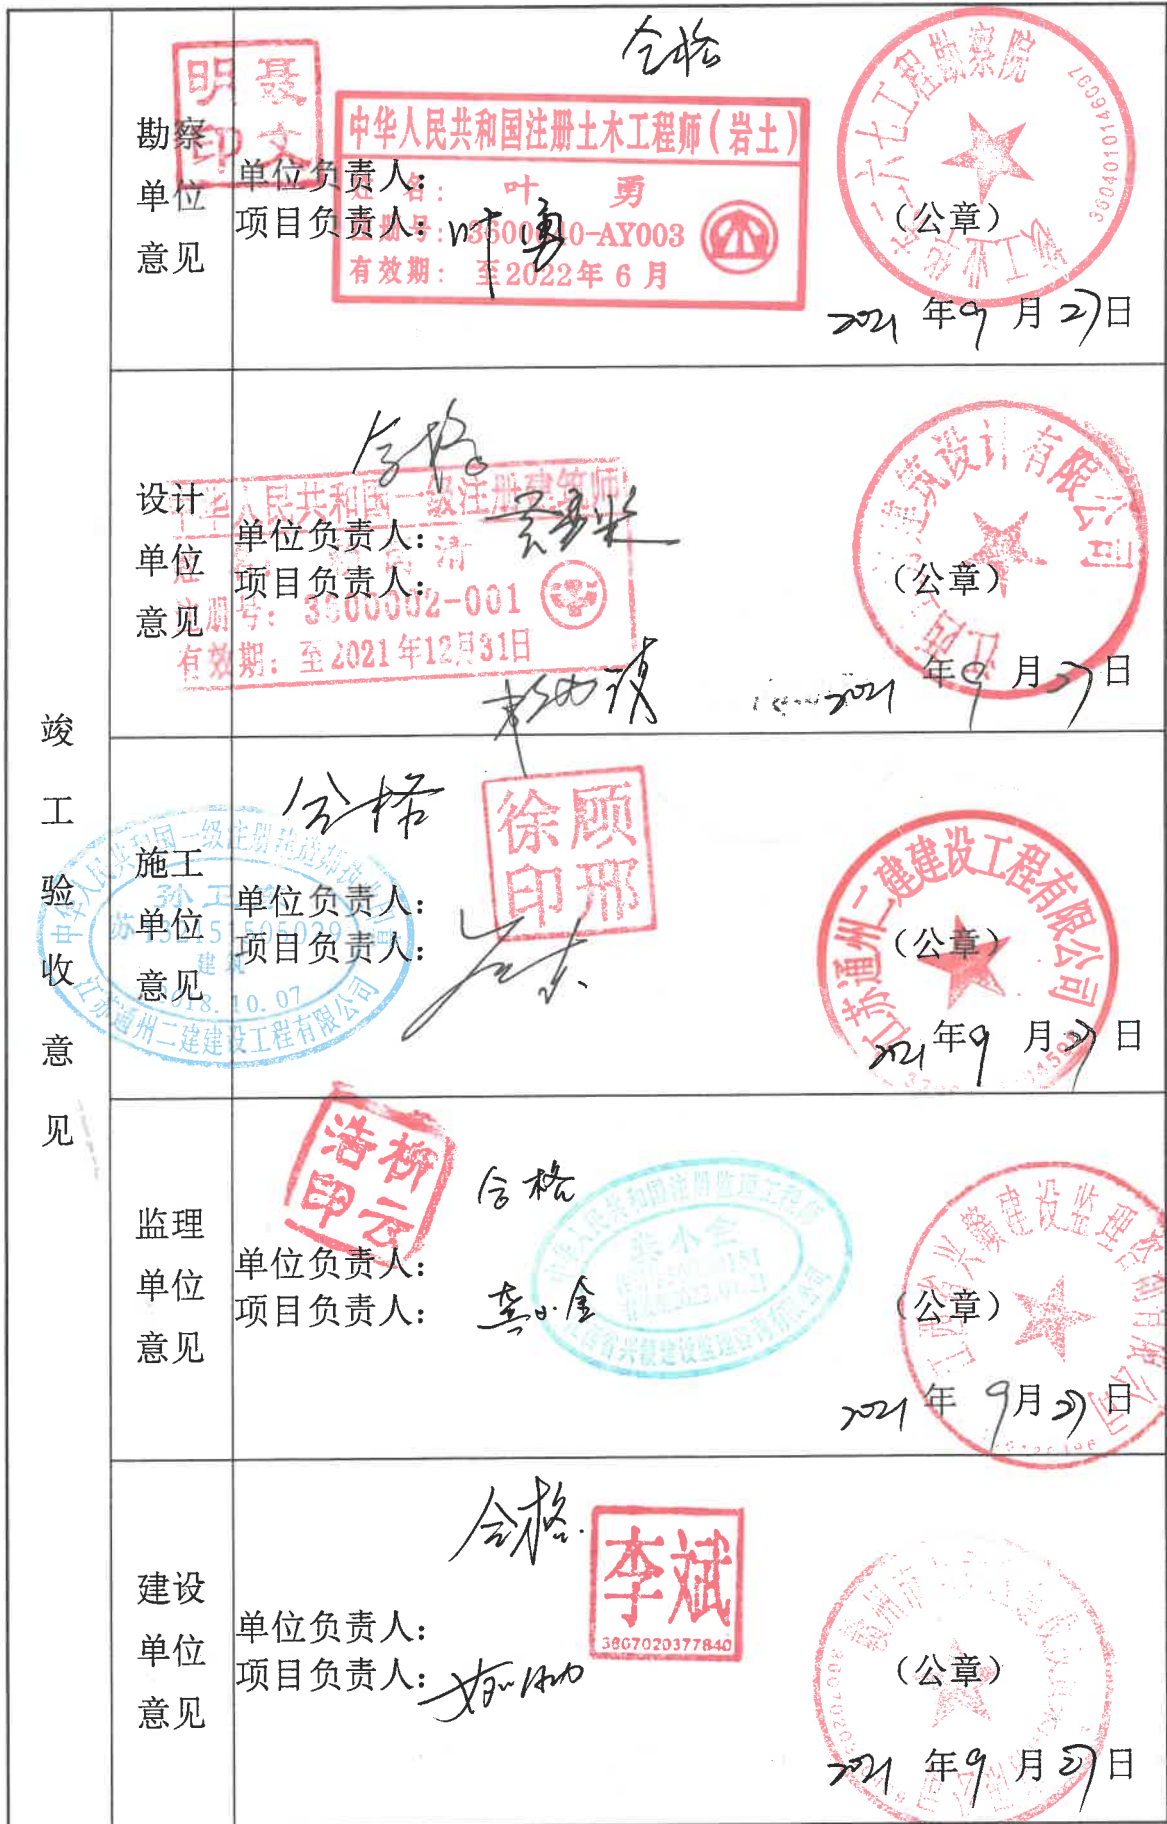 竣工验收意见
勘察单位意见
合格
聂文明印
中华人民共和国注册土木工程师（岩土）
姓名：叶勇
注册号：3600040-AY003
有效期：至2022年6月
单位负责人：
项目负责人：叶勇
二六七工程勘察院
3604010146097
（公章）
2021年9月27日
设计单位意见
合格
中华人民共和国一级注册建筑师
注册号：3600002-001
有效期：至2021年12月31日
单位负责人：
项目负责人：
建筑设计有限公司
江西
（公章）
2021年9月27日
施工单位意见
合格
中华人民共和国一级注册建造师执业印章
建筑
2018.10.07
江苏通州二建建设工程有限公司
顾邢徐印
单位负责人：
项目负责人：
江苏通州二建建设工程有限公司
（公章）
2021年9月27日
监理单位意见
柳云浩印
合格
单位负责人：
项目负责人：龚小金
中华人民共和国注册监理工程师
龚小金
江西省兴赣建设监理咨询有限公司
江西省兴赣建设监理咨询有限公司
（公章）
2021年9月27日
建设单位意见
合格.
李斌
3607020377840
单位负责人：
项目负责人：
赣州市
（公章）
2021年9月27日